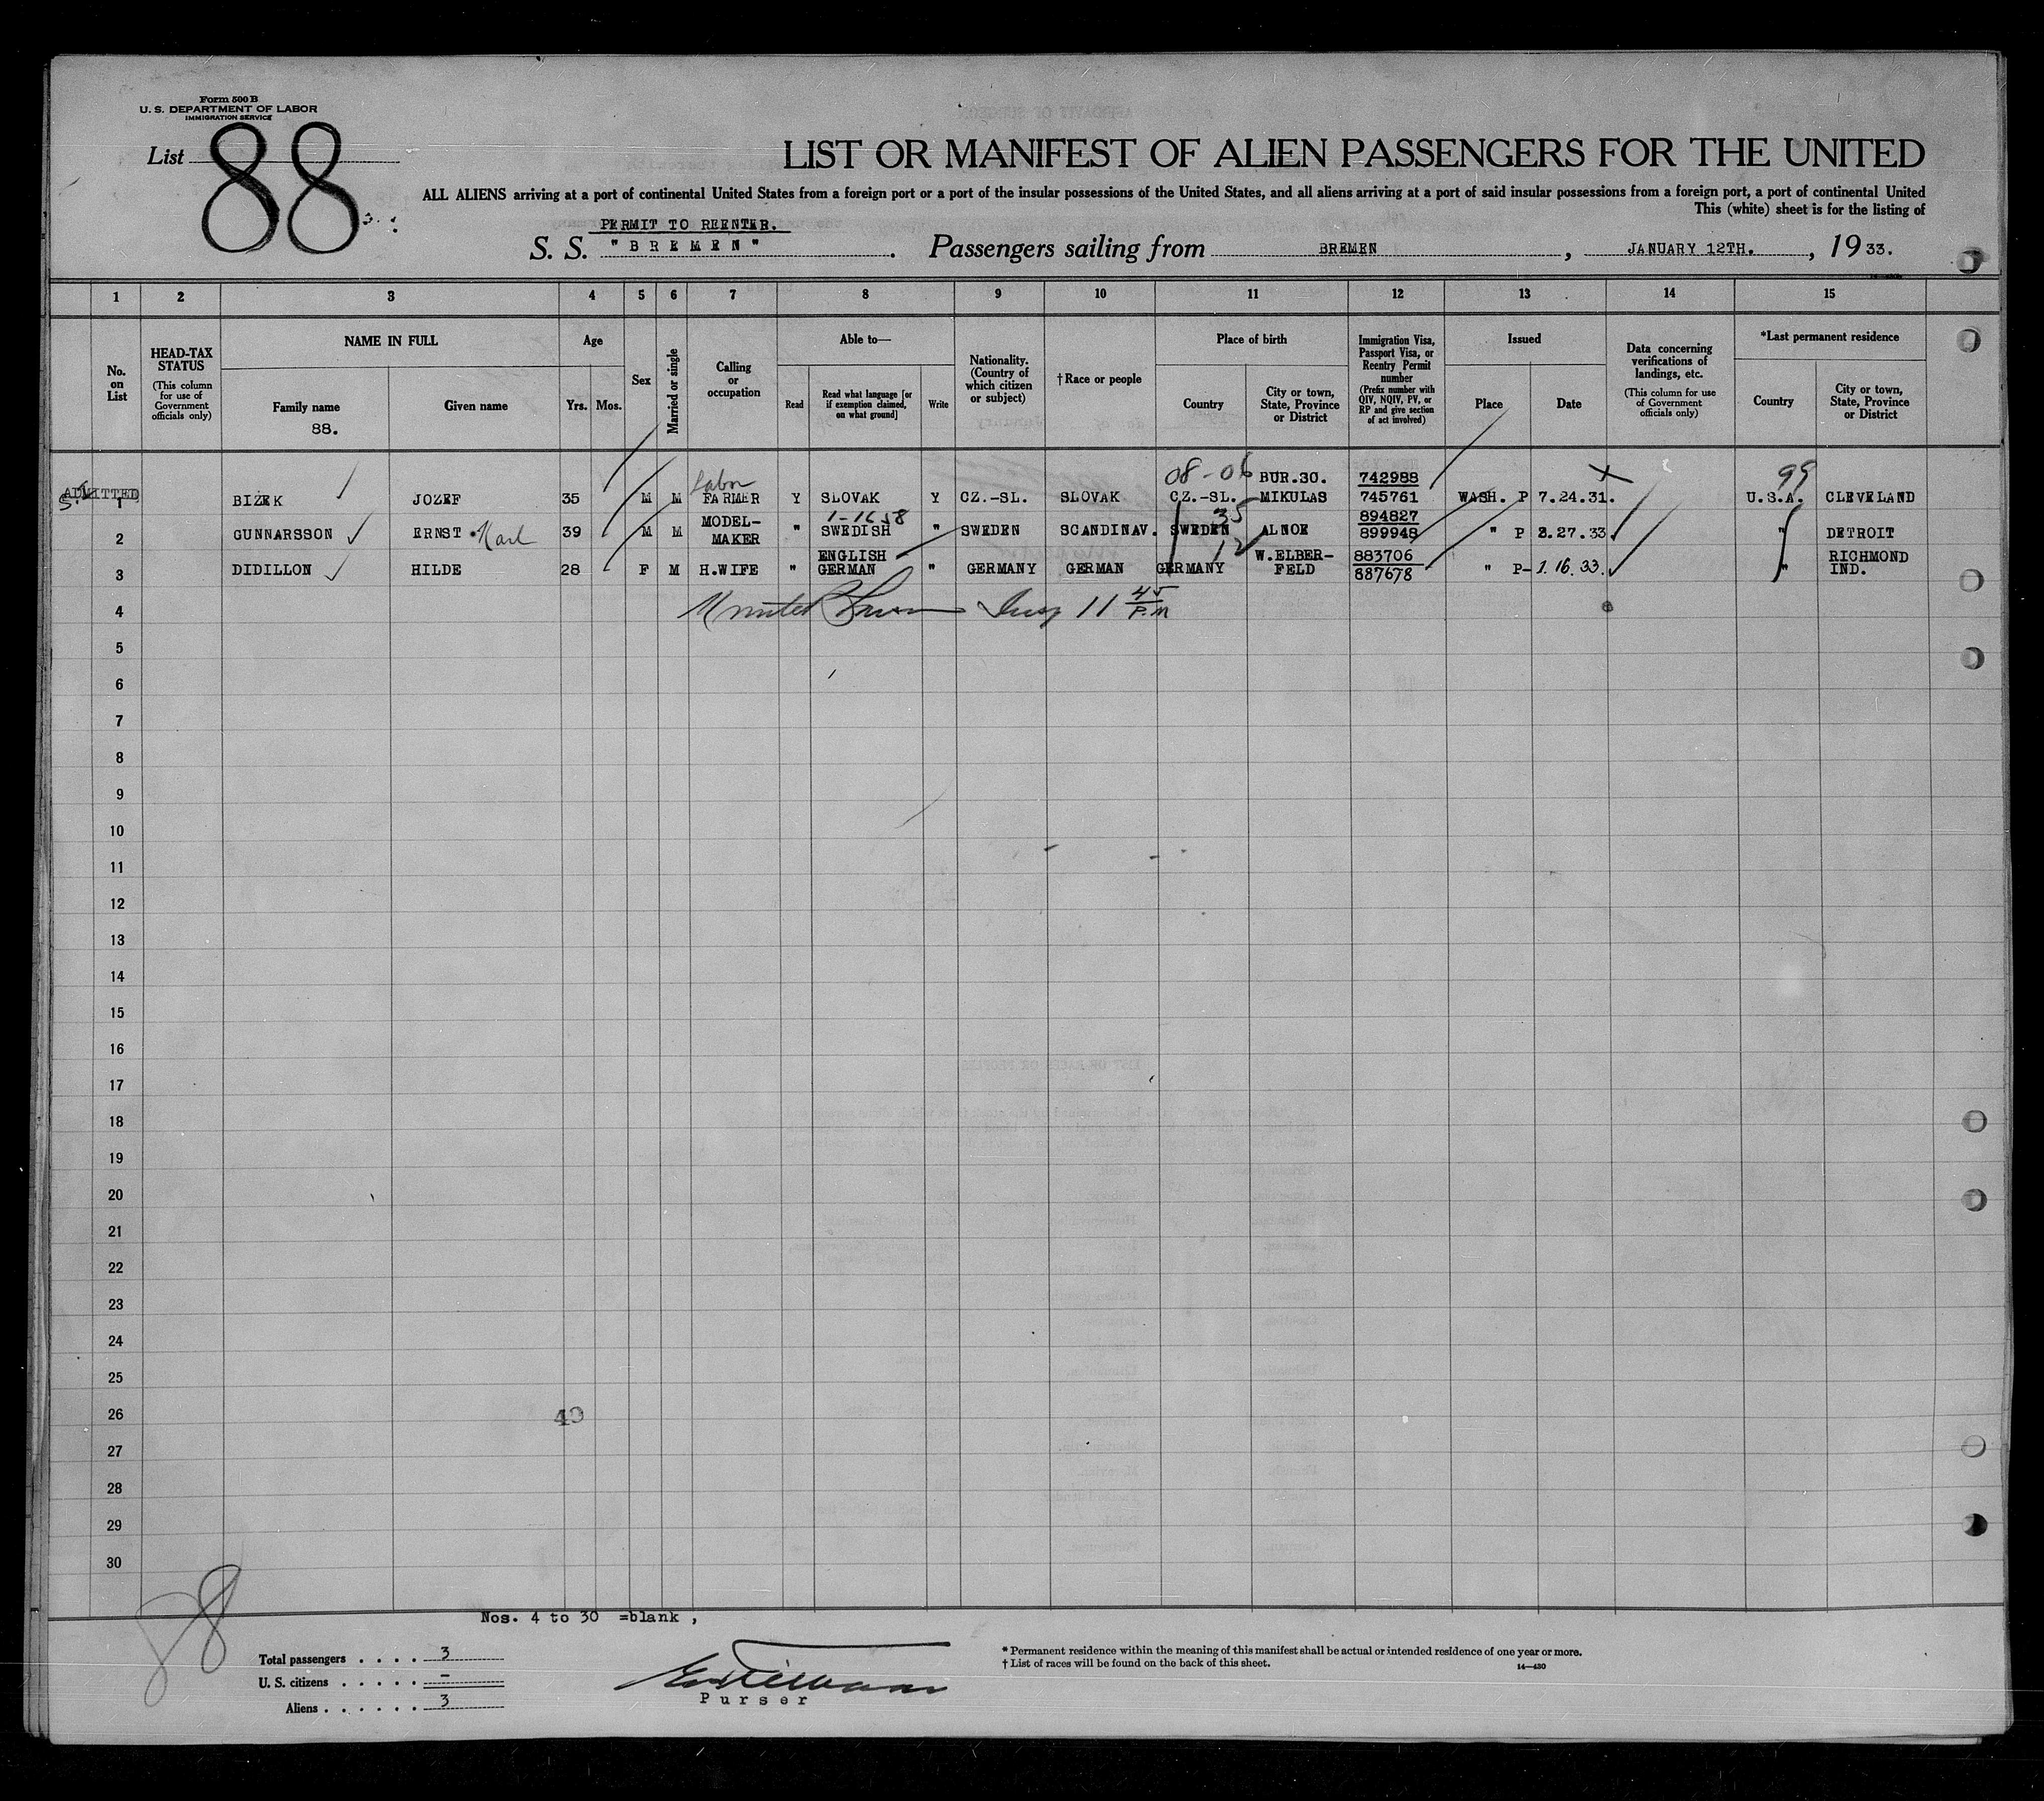 Form 500 B
U. S. DEPARTMENT OF LABOR
IMMIGRATION SERVICE
List 88
LIST OR MANIFEST OF ALIEN PASSENGERS FOR THE UNITED
ALL ALIENS arriving at a port of continental United States from a foreign port or a port of the insular possessions of the United States, and all aliens arriving at a port of said insular possessions from a foreign port, a port of continental United
This (white) sheet is for the listing of
PERMIT TO REENTER.
S. S. "BREMEN". Passengers sailing from BREMEN, JANUARY 12TH., 1933.
1 2 3 4 5 6 7 8 9 10 11 12 13 14 15
No. on List
HEAD-TAX STATUS
(This column for use of Government officials only)
NAME IN FULL
Family name
88.
Given name
Age
Yrs. Mos.
Sex
Married or single
Calling or occupation
Able to—
Read
Read what language [or if exemption claimed, on what ground]
Write
Nationality. (Country of which citizen or subject)
†Race or people
Place of birth
Country
City or town, State, Province or District
Immigration Visa, Passport Visa, or Reentry Permit number
(Prefix number with QIV, NQIV, PV, or RP and give section of act involved)
Issued
Place
Date
Data concerning verifications of landings, etc.
(This column for use of Government officials only)
*Last permanent residence
Country
City or town, State, Province or District
Labor 08-06 BUR.30. 742988 99
ADMITTED 1 BIZEK JOZEF 35 M M FARMER Y SLOVAK Y CZ.-SL. SLOVAK CZ.-SL. MIKULAS 745761 WASH. P 7.24.31. U.S.A. CLEVELAND
MODEL- 1-1658 35 894827
2 GUNNARSSON ERNST Karl 39 M M MAKER " SWEDISH " SWEDEN SCANDINAV. SWEDEN ALNOE 899948 " P 2.27.33. " DETROIT
ENGLISH 12 W.ELBER- 883706 RICHMOND
3 DIDILLON HILDE 28 F M H.WIFE " GERMAN " GERMANY GERMAN GERMANY FELD 887678 " P- 1.16.33. " IND.
4 11 45 P.M
5
6
7
8
9
10
11
12
13
14
15
16
17
18
19
20
21
22
23
24
25
26 40
27
28
29
30
88
Nos. 4 to 30 =blank ,
Total passengers . . . . 3
U. S. citizens . . . . . –
Aliens . . . . . . 3
Purser
* Permanent residence within the meaning of this manifest shall be actual or intended residence of one year or more.
† List of races will be found on the back of this sheet.
14—430